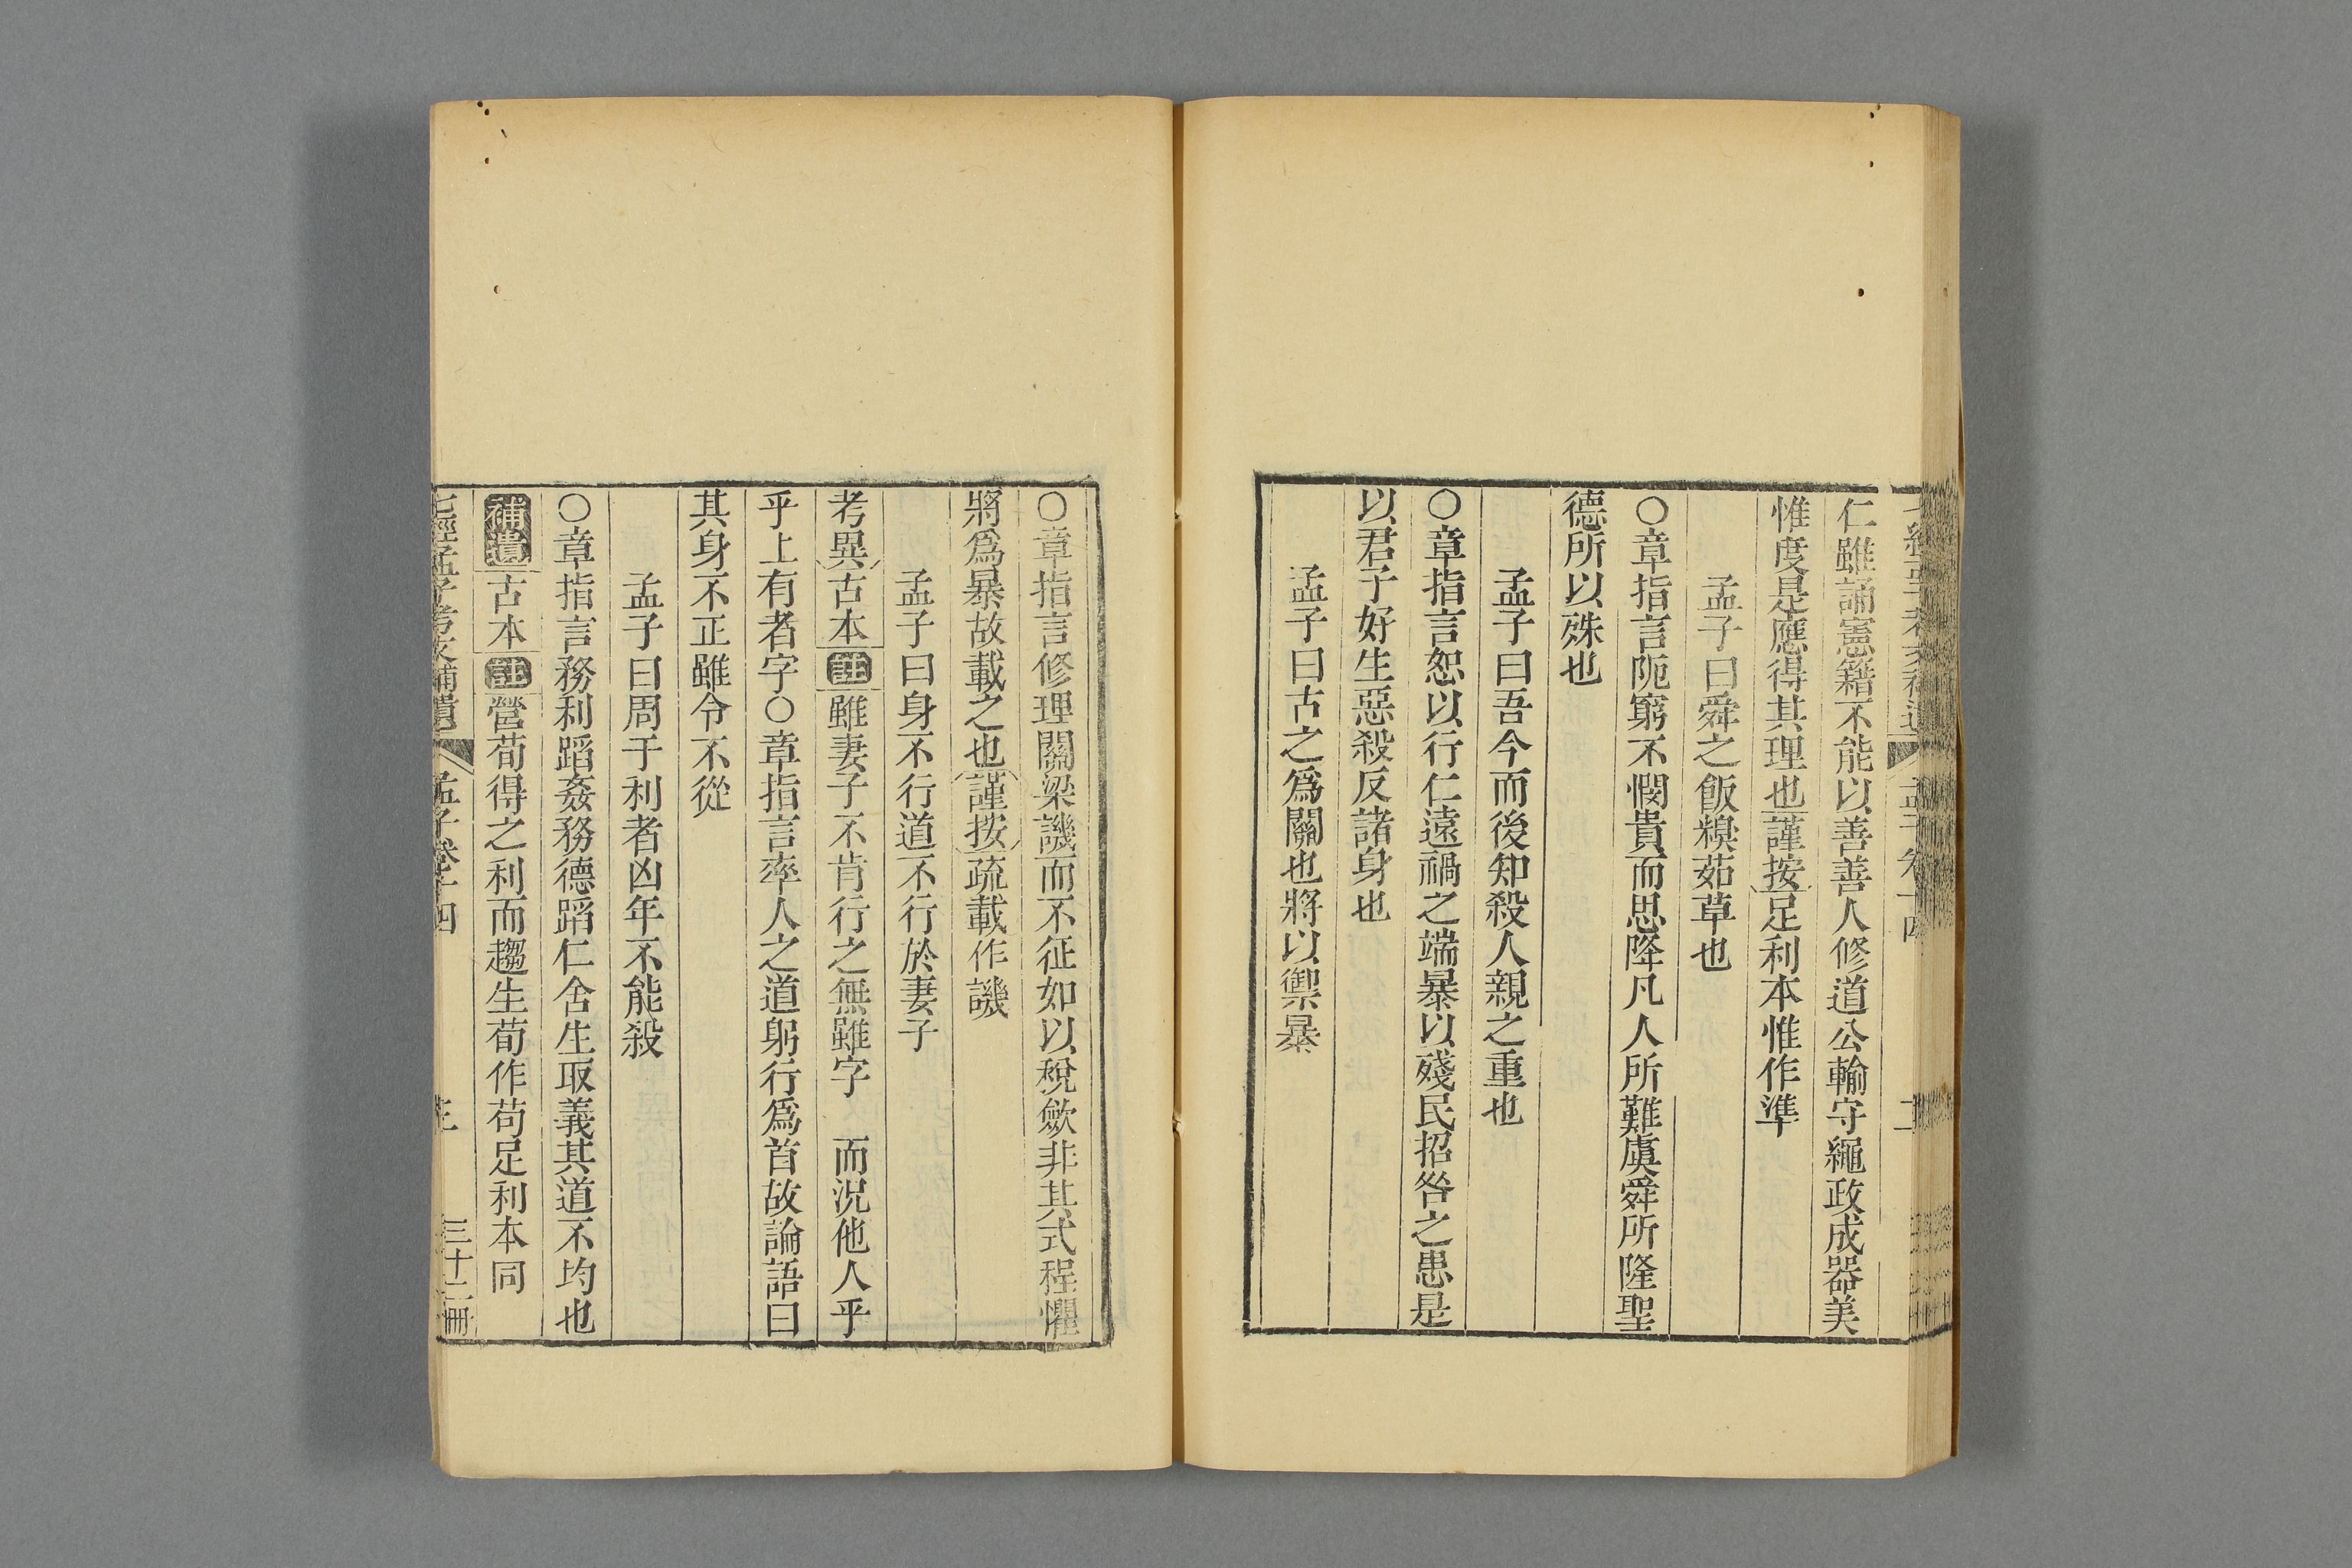 仁雖誦憲籍不能以善善人修道公輸守繩政成器美
惟度是應得其理也謹按足利本惟作準
孟子曰舜之飯糗茹草也
〇章指言阨窮不憫貴而思降凡人所難虞舜所隆聖
德所以殊也
孟子曰吾今而後知殺人親之重也
〇章指言恕以行仁遠禍之端暴以殘民招咎之患是
以君子好生惡殺反諸身也
孟子曰古之爲關也將以禦暴
〇章指言修理關梁譏而不征如以稅斂非其式程懼
將爲暴故載之也謹按疏載作譏
孟子曰身不行道不行於妻子
考異古本註雖妻子不肯行之無雖字 而況他人乎
乎上有者字〇章指言率人之道躬行爲首故論語曰
其身不正雖令不從
孟子曰周于利者凶年不能殺
〇章指言務利蹈姦務德蹈仁舍生取義其道不均也
補遺古本註營荀得之利而趨生荀作苟足利本同
七經孟子考文補遺 孟子卷十四 三十二冊